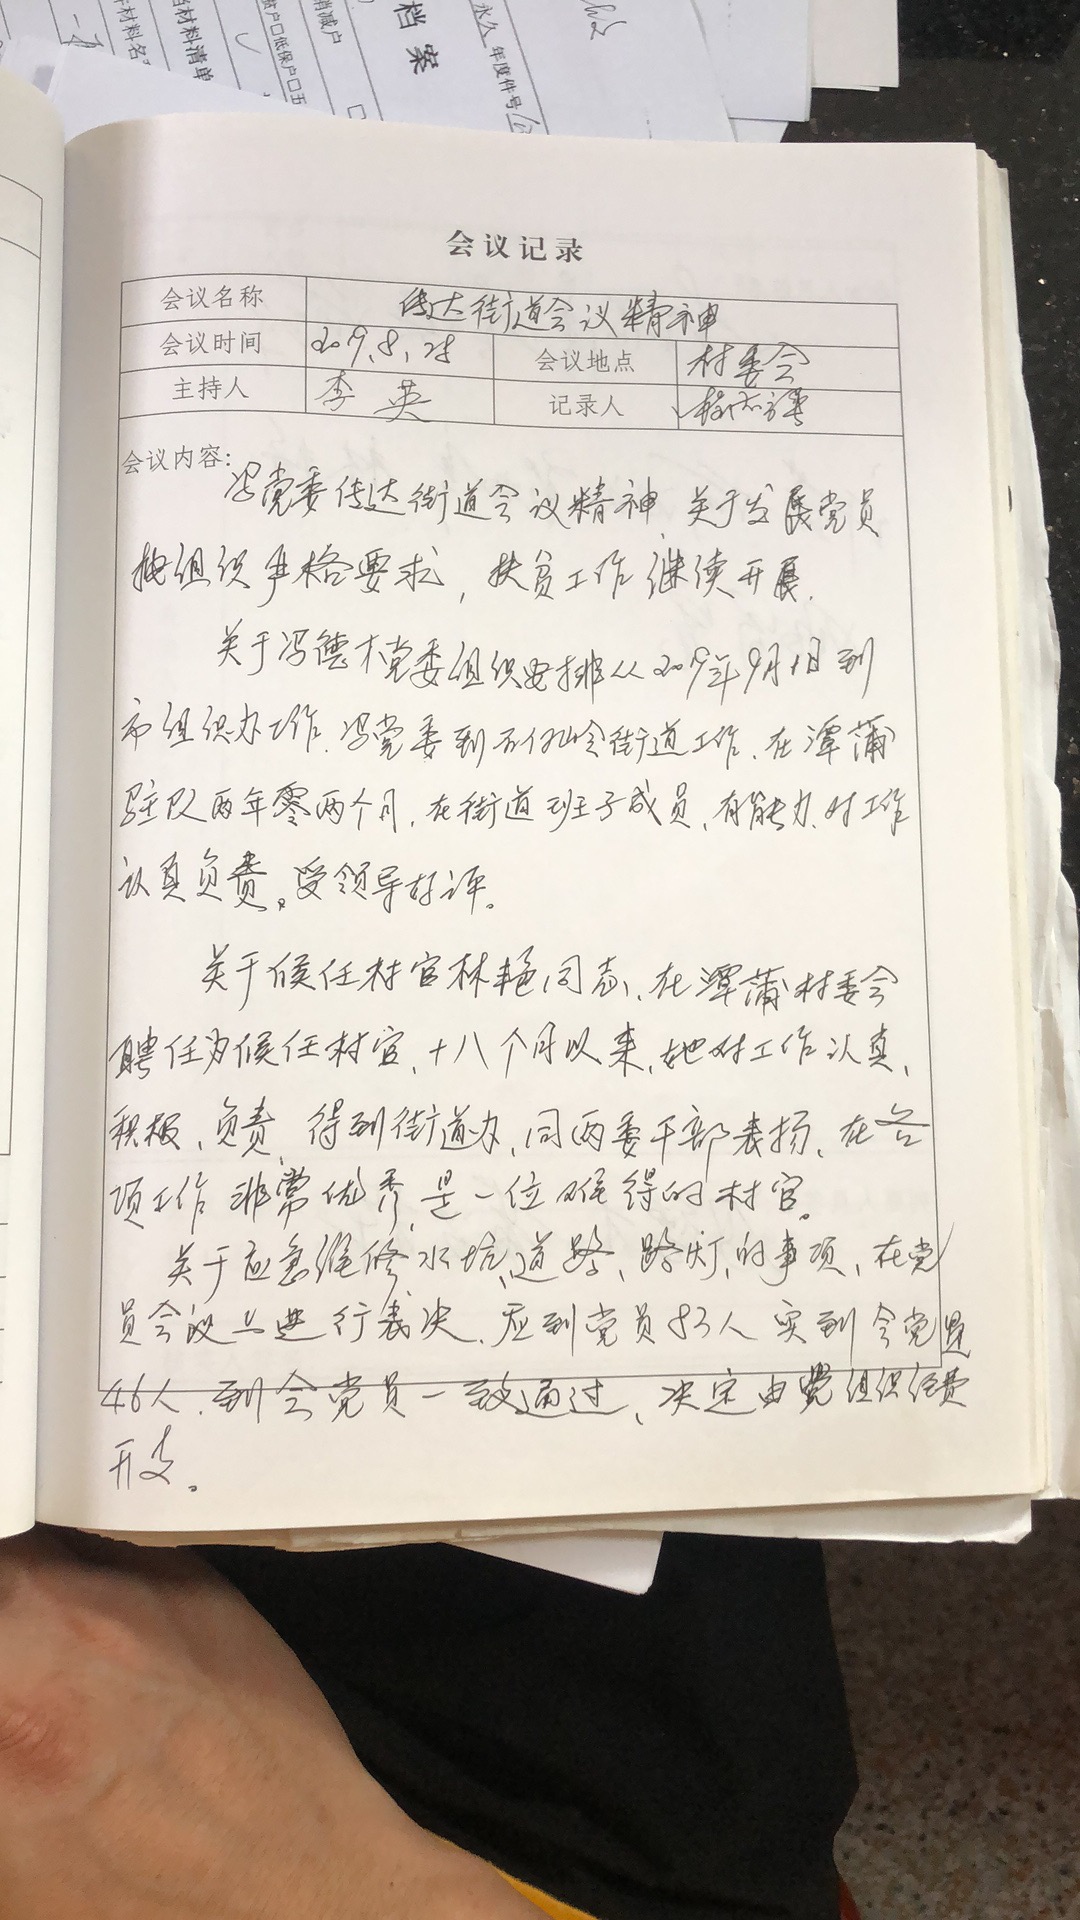 档案
永久
年度件号
消减户
贫户口低保户口五
材料清单
会议记录
会议名称 传达街道会议精神
会议时间 2019.8.28 会议地点 村委会
主持人 李英 记录人
会议内容:
冯党委传达街道会议精神,关于发展党员
按组织严格要求,扶贫工作继续开展.
关于冯德才党委组织安排从2019年9月1日到
市组织办工作.冯党委到五仙岭街道工作.在潭蒲
驻队两年零两个月.在街道班子成员,有能力.对工作
认真负责。受领导好评。
关于候任村官林艳同志、在潭蒲村委会
聘任为候任村官,十八个月以来,她对工作认真、
积极、负责、得到街道办,同两委干部表扬、在各
项工作非常优秀,是一位难得的村官。
关于应急维修水坑、道路、路灯,的事项、在党
员会议上进行表决.应到党员83人实到会党员
46人.到会党员一致通过、决定由党组织经费
开支。